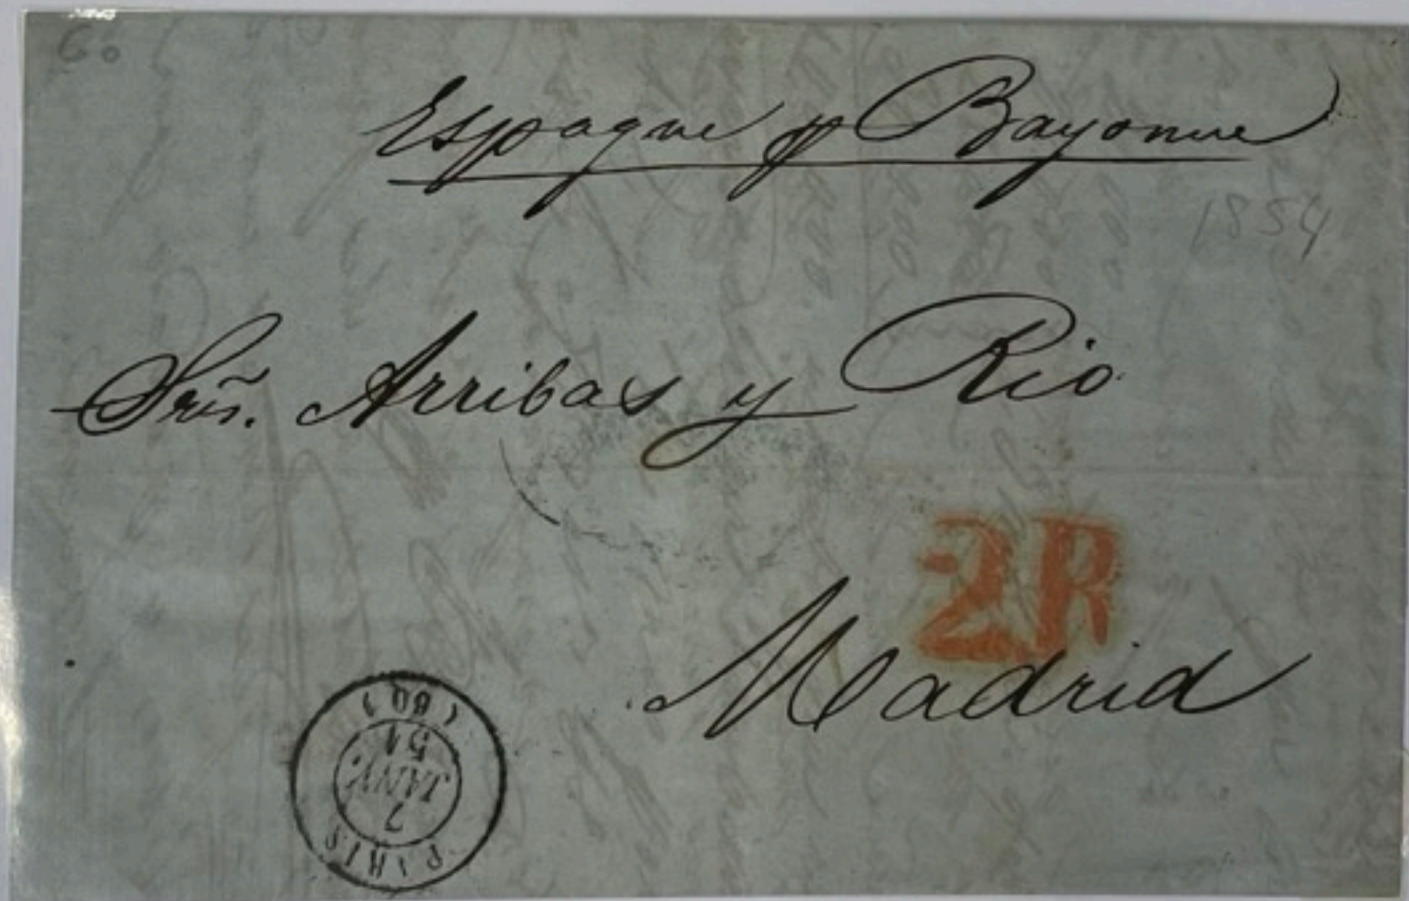 60
Espagne p Bayonne
1854
Srs. Arribas y Rio
2R
Madrid
PARIS
7
JANV.
54
(60)